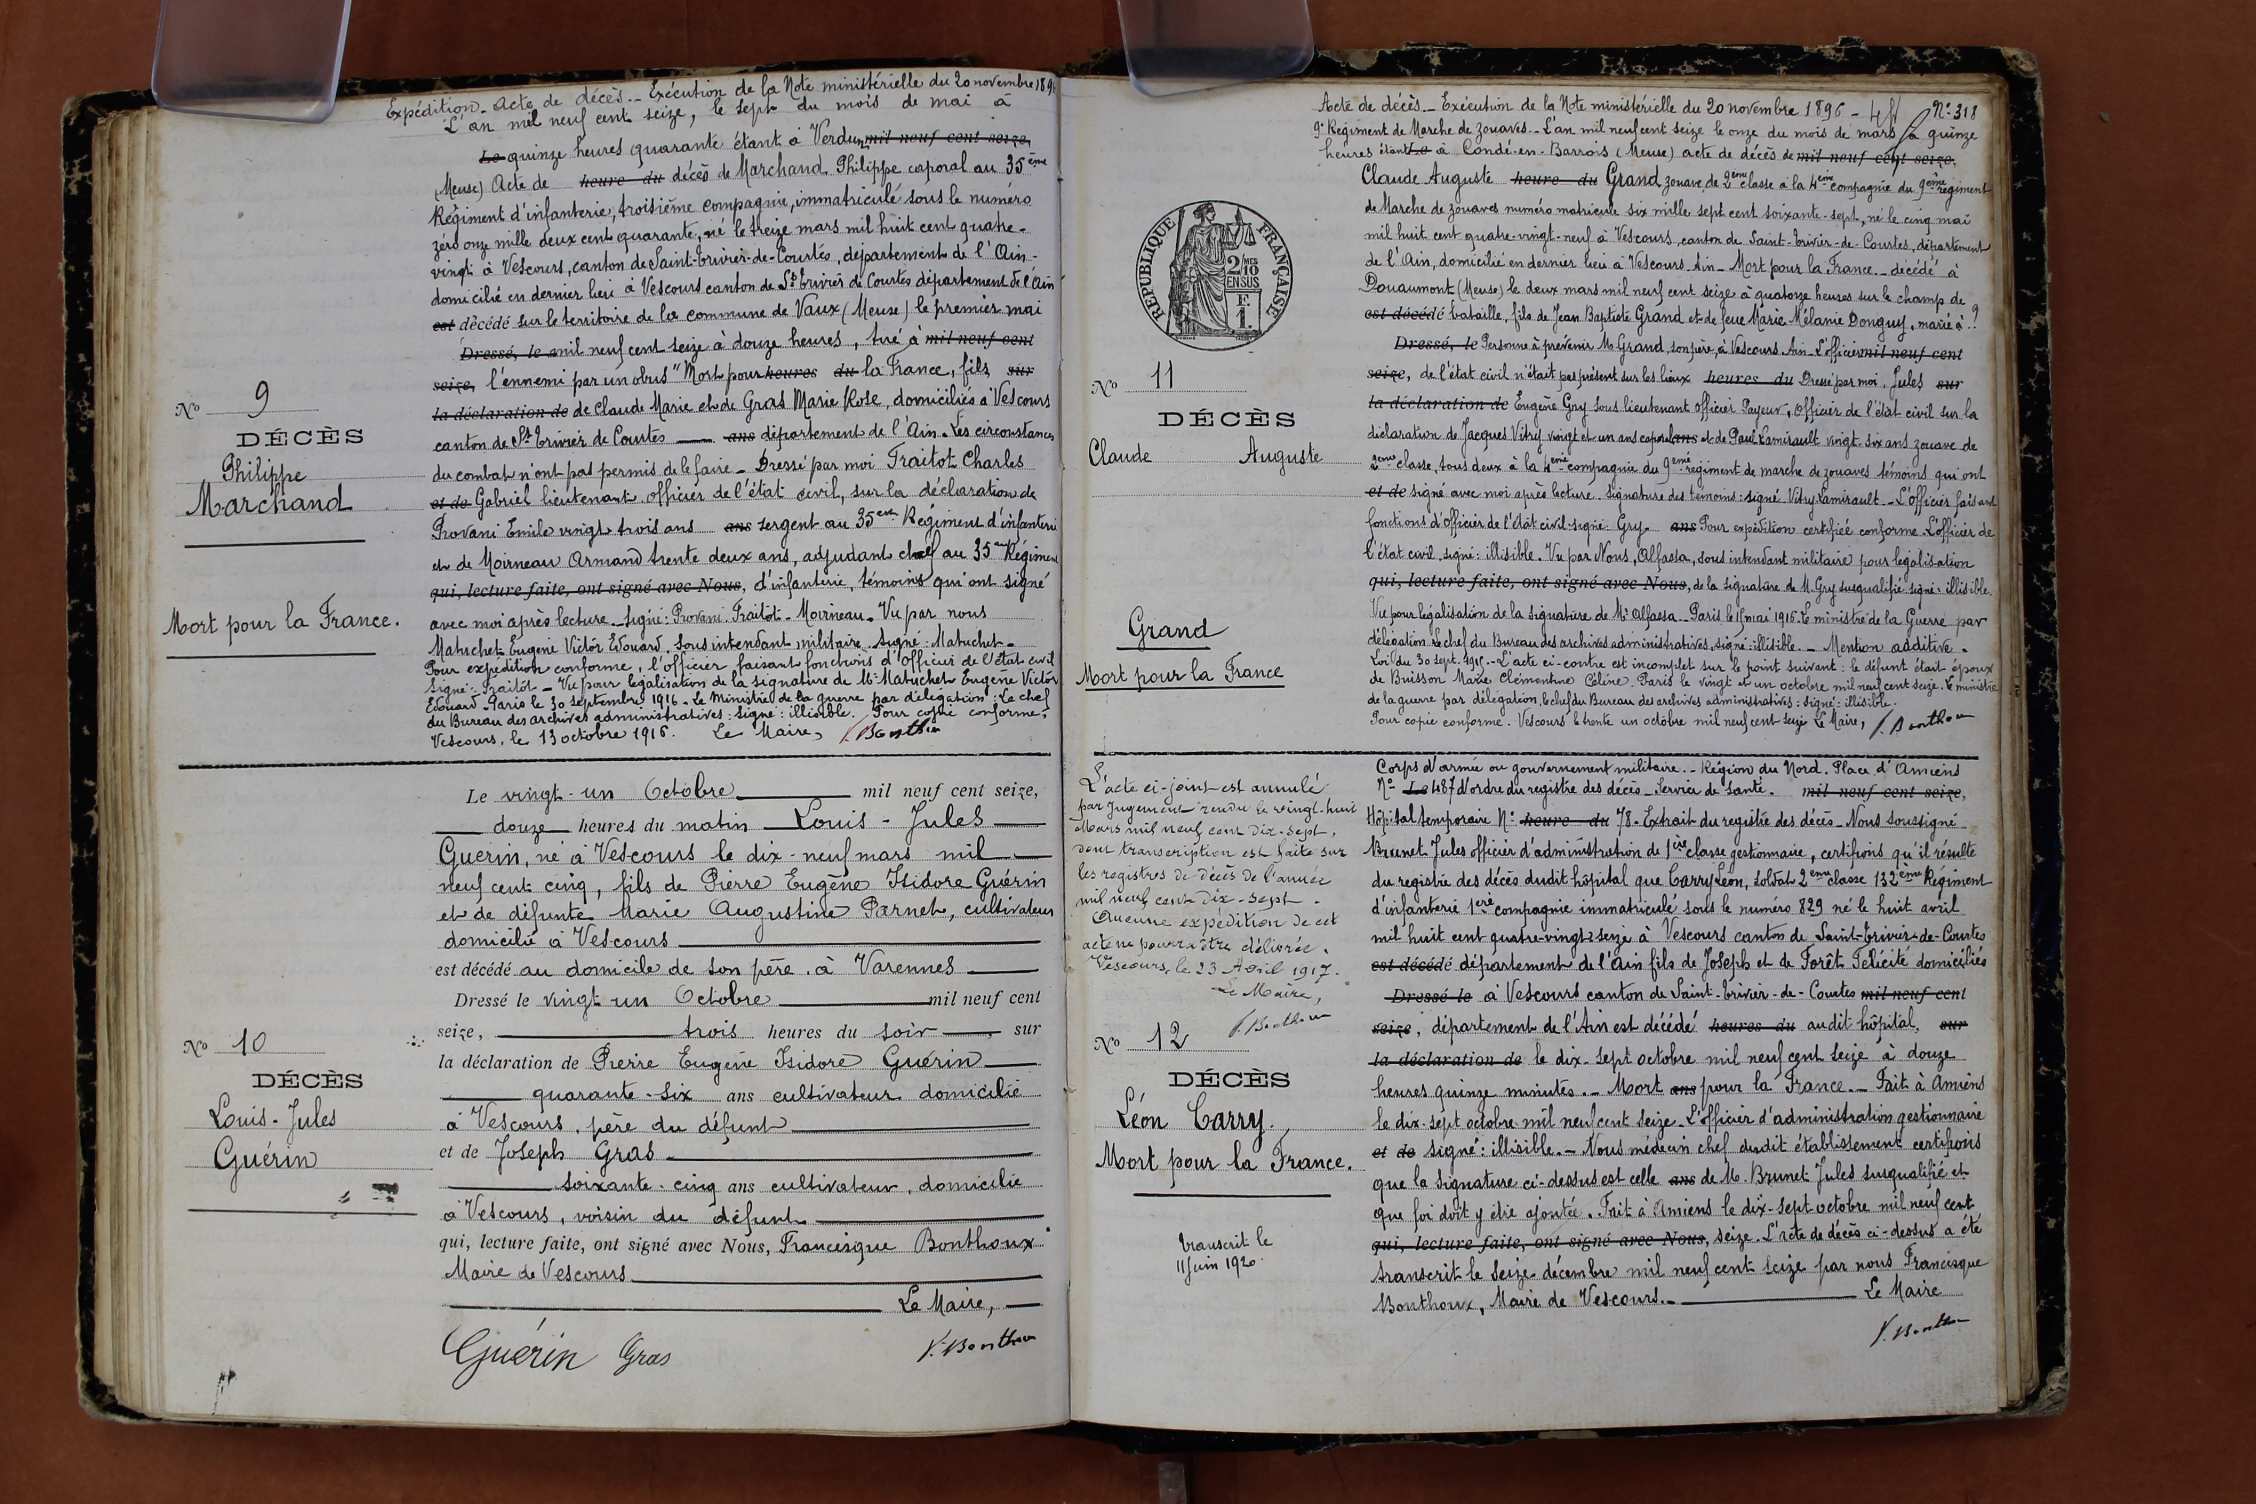 Expédition. Acte de décès. - Exécution de la Note ministérielle du 20 novembre 189
L'an mil neuf cent seize, le sept du mois de mai à
Le quinze heures quarante étant à Verdun mil neuf cent seize,
(Meuse) Acte de heure du décès de Marchand Philippe caporal au 35ème
Régiment d'infanterie, troisième compagnie, immatriculé sous le numéro
zéro onze mille deux cent quarante, né le treize mars mil huit cent quatre-
vingt à Vescours, canton de Saint-trivier-de-Courtes, département de l'Ain -
domicilié en dernier lieu à Vescours canton de St trivier de Courtes département de l'Ain
est décédé sur le territoire de la commune de Vaux (Meuse) le premier mai
Dressé, le mil neuf cent seize à douze heures, tué à mil neuf cent
seize, l'ennemi par un obus "Mort pour heures du la France, fils sur
la déclaration de de Claude Marie et de Gras Marie Rose, domiciliés à Vescours
canton de St trivier de Courtes ans département de l'Ain. Les circonstances
du combat n'ont pas permis de le faire - Dressé par moi Traitot Charles
et de Gabriel lieutenant officier de l'état civil, sur la déclaration de
Provani Emile vingt trois ans ans sergent au 35eme Régiment d'infanterie
et de Moirneau Armand trente deux ans, adjudant chef au 35eme Régiment
qui, lecture faite, ont signé avec Nous, d'infanterie, témoins qui ont signé
avec moi après lecture. Signé: Provani. Traitot - Moirneau. Vu par nous
Matuchet Eugène Victor Edouard, sous intendant militaire. Signé: Matuchet -
Pour expédition conforme, l'officier faisant fonctions d'officier de l'état civil
Signé: Traitot - Vu pour légalisation de la signature de Mr Matuchet Eugène Victor
Edouard. Paris le 30 septembre 1916. Le Ministre de la guerre par délégation: Le chef
du Bureau des archives administratives: signé: illisible. Pour copie conforme,
Vescours, le 13 octobre 1916. Le Maire, F. Bonthoux
No 9
DÉCÈS
Philippe
Marchand
Mort pour la France.
Le vingt-un Octobre mil neuf cent seize,
douze heures du matin Louis-Jules
Guérin, né à Vescours le dix-neuf mars mil
neuf cent cinq, fils de Pierre Eugène Isidore Guérin
et de défunte Marie Augustine Parnet, cultivateur
domicilié à Vescours
est décédé au domicile de son père. à Varennes
Dressé le vingt un Octobre mil neuf cent
seize, trois heures du soir sur
la déclaration de Pierre Eugène Isidore Guérin
quarante-six ans cultivateur domicilié
à Vescours, père du défunt
et de Joseph Gras
soixante-cinq ans cultivateur, domicilié
à Vescours, voisin du défunt
qui, lecture faite, ont signé avec Nous, Francisque Bonthoux
Maire de Vescours
Le Maire,
Guérin Gras F. Bonthoux
No 10
DÉCÈS
Louis-Jules
Guérin
Acte de décès. - Exécution de la Note ministérielle du 20 novembre 1896 - No 318
9e Régiment de Marche de zouaves - L'an mil neuf cent seize le onze du mois de mars à quinze
heures étant Le à Condé-en-Barrois (Meuse) acte de décès de mil neuf cent seize.
Claude Auguste heure du Grand zouave de 2ème classe à la 4ème compagnie du 9ème régiment
de Marche de zouaves numéro matricule six mille sept cent soixante-sept, né le cinq mai
mil huit cent quatre-vingt-neuf à Vescours, canton de Saint-trivier-de-Courtes, département
de l'Ain, domicilié en dernier lieu à Vescours. Ain - Mort pour la France. - décédé à
Douaumont (Meuse) le deux mars mil neuf cent seize à quatorze heures sur le champ de
est décédé bataille, fils de Jean Baptiste Grand et de feue Marie Mélanie Donguy, marié à ?
Dressé, le Personne à prévenir Mr Grand, son père, à Vescours. Ain - L'officier mil neuf cent
seize, de l'état civil n'était pas présent sur les lieux heures du Dressé par moi, Jules sur
la déclaration de Eugène Gry sous lieutenant officier Payeur, Officier de l'état civil sur la
déclaration de Jacques Vitry vingt et un ans caporal ans et de Paul Lamirault vingt-six ans zouave de
2ème classe, tous deux à la 4ème compagnie du 9ème régiment de marche de zouaves témoins qui ont
et de signé avec moi après lecture. Signature des témoins: signé Vitry. Lamirault - L'officier faisant
fonctions d'officier de l'état civil - signé: Gry. ans Pour expédition certifiée conforme. L'officier de
l'état civil, signé: illisible. Vu par Nous, Alfassa, sous intendant militaire pour légalisation
qui, lecture faite, ont signé avec Nous, de la signature de M. Gry susqualifié signé: illisible.
Vu pour légalisation de la signature de Mr Alfassa. Paris le mai 1916. Le ministre de la Guerre par
délégation. Le chef du Bureau des archives administratives, signé: illisible. - Mention additive.
Loi du 30 sept. 1915. - L'acte ci-contre est incomplet sur le point suivant: le défunt était époux
de Buisson Marie Clémentine Céline. Paris le vingt et un octobre mil neuf cent seize. Le ministre
de la guerre par délégation, le chef du Bureau des archives administratives: signé: illisible.
Pour copie conforme. Vescours le trente un octobre mil neuf cent seize Le Maire, F. Bonthoux
RÉPUBLIQUE FRANÇAISE
2/10 MES EN SUS
F. 1.
No 11
DÉCÈS
Claude Auguste
Grand
Mort pour la France
L'acte ci-joint est annulé
par Jugement rendu le vingt-huit
Mars mil neuf cent dix-sept,
dont transcription est faite sur
les registres de décès de l'année
mil neuf cent dix-sept.
Aucune expédition de cet
acte ne pourra être délivrée.
Vescours, le 23 Avril 1917.
Le Maire,
F. Bonthoux
No 12
DÉCÈS
Léon Carry.
Mort pour la France.
transcrit le
11 Juin 1920.
Corps d'armée ou gouvernement militaire. - Région du Nord. Place d'Amiens
No Le 487 d'ordre du registre des décès - Service de Santé. mil neuf cent seize,
Hôpital temporaire No heure du 78 - Extrait du registre des décès - Nous soussigné
Brunet Jules officier d'administration de 1ère classe gestionnaire, certifions qu'il résulte
du registre des décès dudit hôpital que Carry Léon, Soldat 2ème classe 132ème Régiment
d'infanterie 1ère compagnie immatriculé sous le numéro 829 né le huit avril
mil huit cent quatre-vingt-seize à Vescours canton de Saint-trivier-de-Courtes
est décédé département de l'Ain fils de Joseph et de Forêt Félicité domiciliés
Dressé le à Vescours canton de Saint-trivier-de-Courtes mil neuf cent
seize, département de l'Ain est décédé heures du audit hôpital, sur
la déclaration de le dix-sept octobre mil neuf cent seize à douze
heures quinze minutes. - Mort ans pour la France. - Fait à Amiens
le dix-sept octobre mil neuf cent seize. L'officier d'administration gestionnaire
et de signé: illisible. - Nous médecin chef dudit établissement certifions
que la signature ci-dessus est celle ans de M. Brunet Jules susqualifié et
que foi doit y être ajoutée. Fait à Amiens le dix-sept octobre mil neuf cent
qui, lecture faite, ont signé avec Nous, seize. L'acte de décès ci-dessus a été
transcrit le Seize décembre mil neuf cent seize par nous Francisque
Bonthoux, Maire de Vescours. - Le Maire
F. Bonthoux